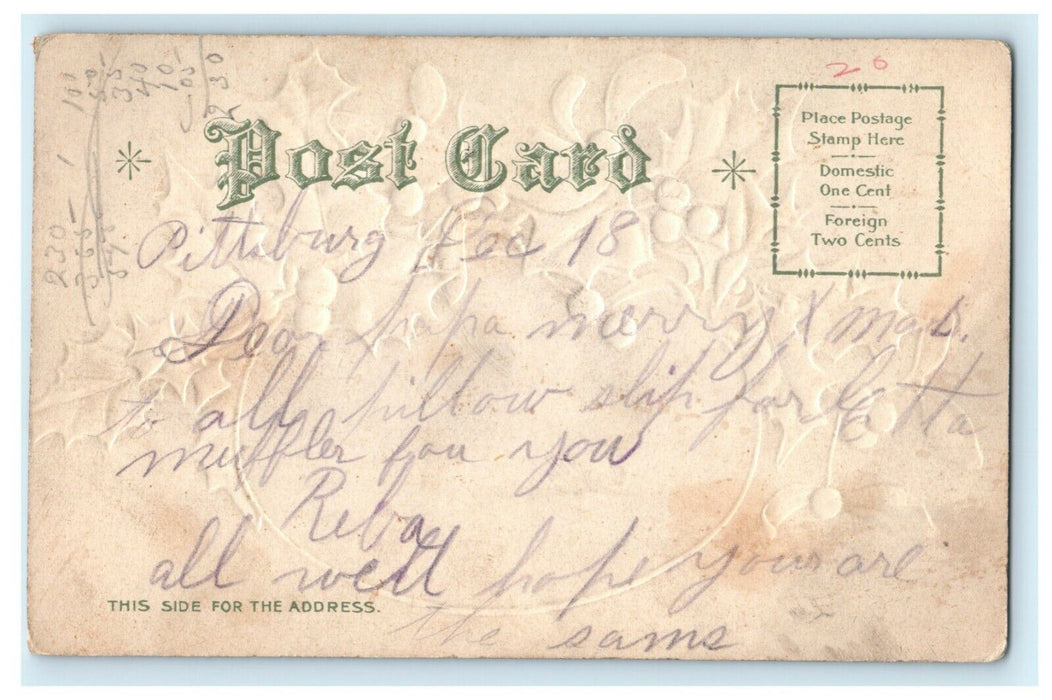 20
Post Card
Place Postage
Stamp Here
Domestic
One Cent
Foreign
Two Cents
Pittsburg Dec 18
Dear papa merry Xmas.
to all pillow slip for Etta
muffler for you
Reba
all well hope your are
the same
THIS SIDE FOR THE ADDRESS.
10
50
35
40
10
230
230
365